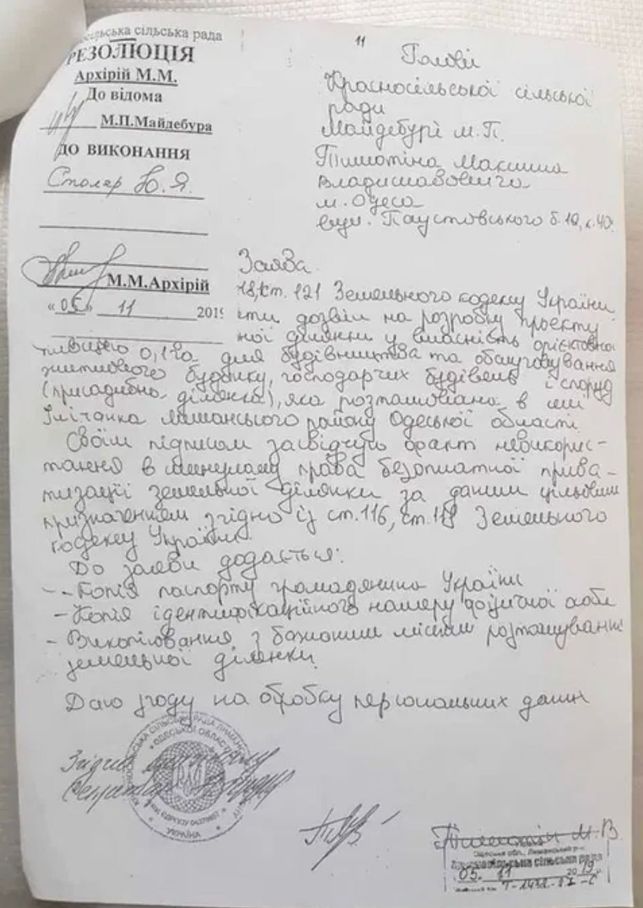 сільська рада
РЕЗОЛЮЦІЯ
Архірій М.М.
До відома
М.П.Майдебура
ДО ВИКОНАННЯ
Столяр Ю.Я.
М.М.Архірій
«05» 11 2019
11
Голові
Красносільської сільської
ради
Майдебурі М.П.
Тімотіна Максима
Владиславовича
м. Одеса
вул. Паустовського б.19, к.40
Заява.
118, ст. 121 Земельного кодексу України
дозвіл на розробку проєкту
ділянки у власність орієнтовною
площею 0,1 га для будівництва та обслуговування
житлового будинку, господарчих будівель і споруд
(присадибна ділянка), яка розташована в селі
Іллічанка Лиманського району Одеської області.
Своїм підписом засвідчую факт невикорис-
тання в минулому права безоплатної прива-
тизації земельної ділянки за даним цільовим
призначенням згідно із ст. 116, ст. 118 Земельного
кодексу України.
До заяви додається:
- Копія паспорту громадянина України
- Копія ідентифікаційного номеру фізичної особи
- Викопіювання з бажаним місцем розташування
земельної ділянки.
Даю згоду на обробку персональних даних
УКРАЇНА
Тімотін М.В.
Одеська обл., Лиманський р-н
сільська рада
05. 11 2019